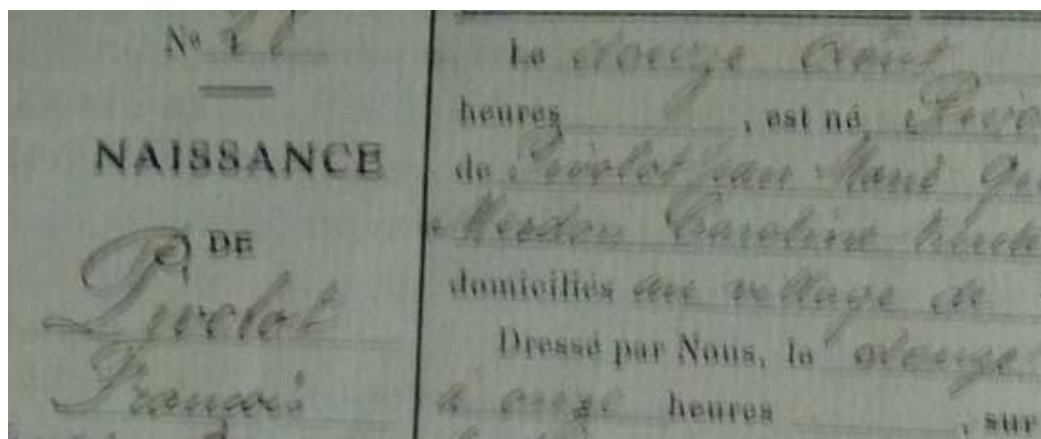 Nº 
NAISSANCE
DE
Pivolot
François
Le douze Août
heures , est né
de Pivolot Jean Marie
Merdon Caroline trente
domiciliés au village de
Dressé par Nous, le douze
à onze heures , sur